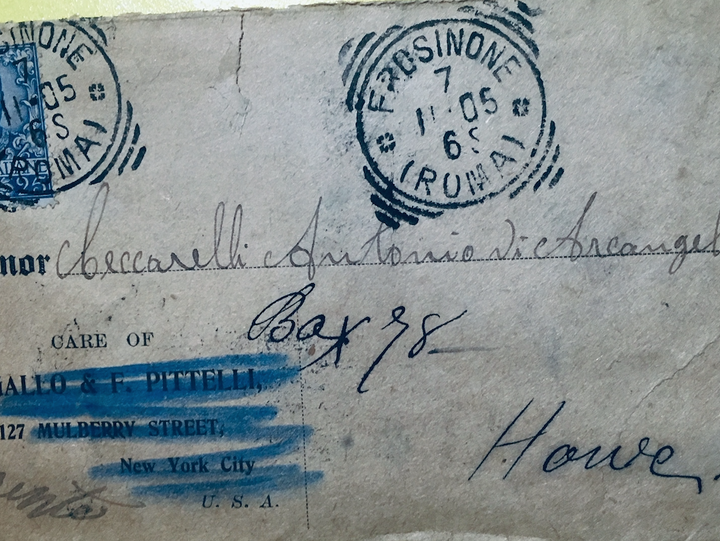 SINONE
7
11-05
6S
(ROMA)
25
FROSINONE
7
11-05
6S
(ROMA)
nor Ceccarelli Antonio di Arcangel
CARE OF
Box 78
GALLO & F. PITTELLI,
127 MULBERRY STREET,
Howe
New York City
U. S. A.